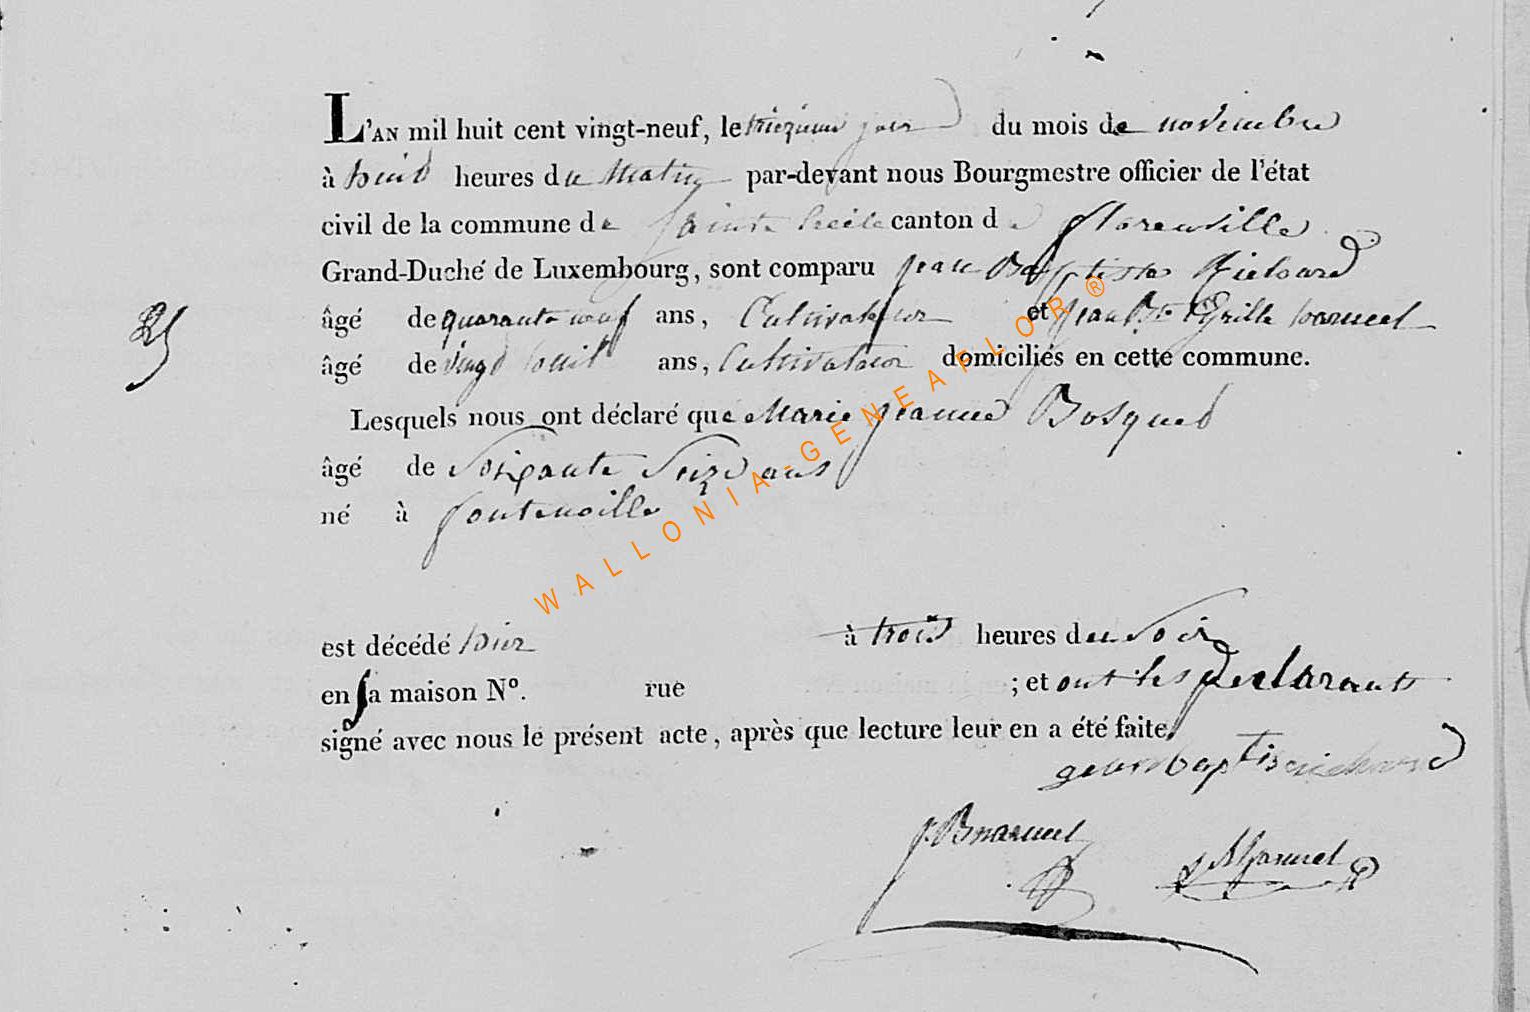 L'AN mil huit cent vingt-neuf, le treizieme jour du mois de novembre
à huit heures du Matin par-devant nous Bourgmestre officier de l'état
civil de la commune de Sainte Cecile canton de florenville
Grand-Duché de Luxembourg, sont comparu Jean Baptiste Richard
âgé de quarante neuf ans, Cultivateur et Jean Bte
25
âgé de vingt huit ans, Cultivateur domiciliés en cette commune.
Lesquels nous ont déclaré que Marie Jeanne Bosquet
âgé de Soixante Seize ans
né à fontenoille
WALLONIA-GENEAFLOR ®
est décédé hier à trois heures du Soir
en sa maison N°. rue ; et ont les declarants
signé avec nous le présent acte, après que lecture leur en a été faite.